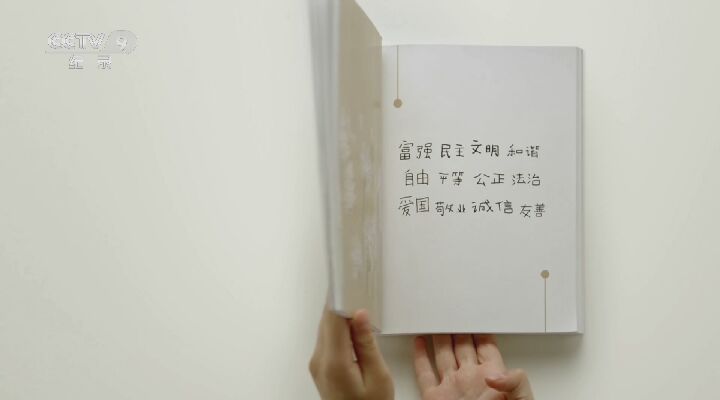 CCTV 9
纪录
富强 民主 文明 和谐
自由 平等 公正 法治
爱国 敬业 诚信 友善